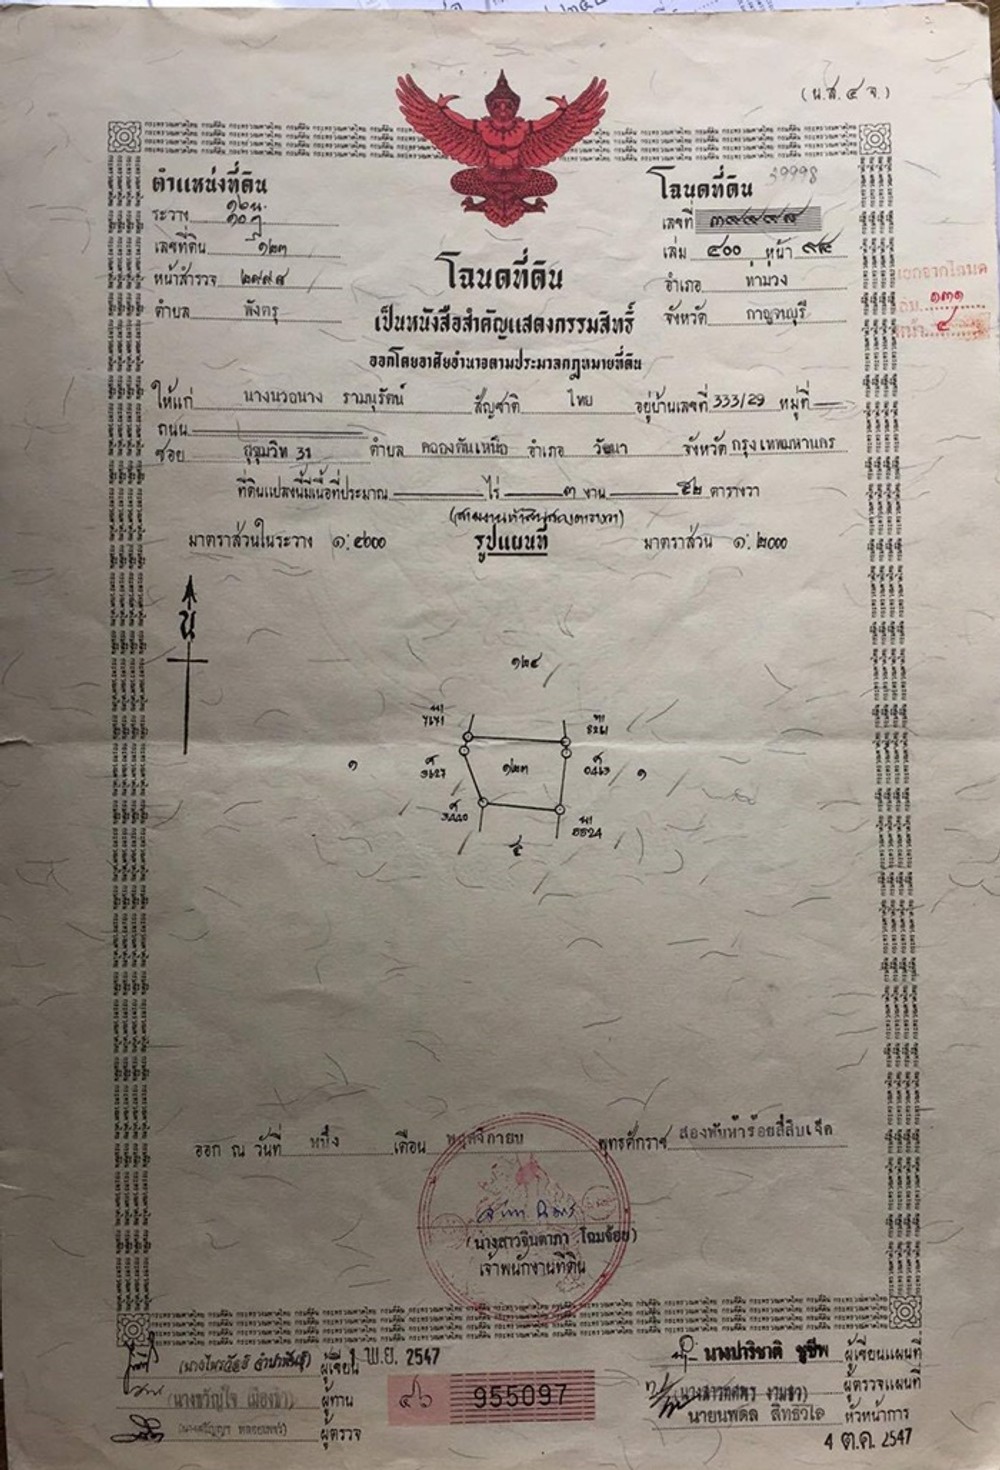 (น.ส. ๔ จ.)
ตำแหน่งที่ดิน
ระวาง
เลขที่ดิน ๑๒๓
หน้าสำรวจ ๒๙๙๘
ตำบล พังตรุ
โฉนดที่ดิน 39998
เลขที่
เล่ม ๔๐๐ หน้า ๙๘
อำเภอ ท่าม่วง
จังหวัด กาญจนบุรี
แยกจากโฉนด
เล่ม ๑๓๑
หน้า ๔
โฉนดที่ดิน
เป็นหนังสือสำคัญแสดงกรรมสิทธิ์
ออกโดยอาศัยอำนาจตามประมวลกฎหมายที่ดิน
ให้แก่ นางนวอนาง รามนุรัตน์ สัญชาติ ไทย อยู่บ้านเลขที่ 333/29 หมู่ที่
ถนน
ซอย สุขุมวิท 31 ตำบล คลองตันเหนือ อำเภอ วัฒนา จังหวัด กรุงเทพมหานคร
ที่ดินแปลงนี้มีเนื้อที่ประมาณ ไร่ ๓ งาน ๕๒ ตารางวา
(สามงานห้าสิบสองตารางวา)
มาตราส่วนในระวาง ๑: ๔๐๐๐ รูปแผนที่ มาตราส่วน ๑: ๒๐๐๐
น
๑๒๔
๑ ๑๒๓ ๑
5524
๕
ออก ณ วันที่ หนึ่ง เดือน พฤศจิกายน พุทธศักราช สองพันห้าร้อยสี่สิบเจ็ด
(นางสาวจินดาภา โฉมจ้อย)
เจ้าพนักงานที่ดิน
ผู้เขียน 1 พ.ย. 2547
(นางขวัญใจ เมืองช้า) ผู้ทาน
ผู้ตรวจ
๔๖ 955097
นางปาริชาติ ชูชีพ ผู้เขียนแผนที่
ผู้ตรวจแผนที่
หัวหน้าการ
4 ต.ค. 2547